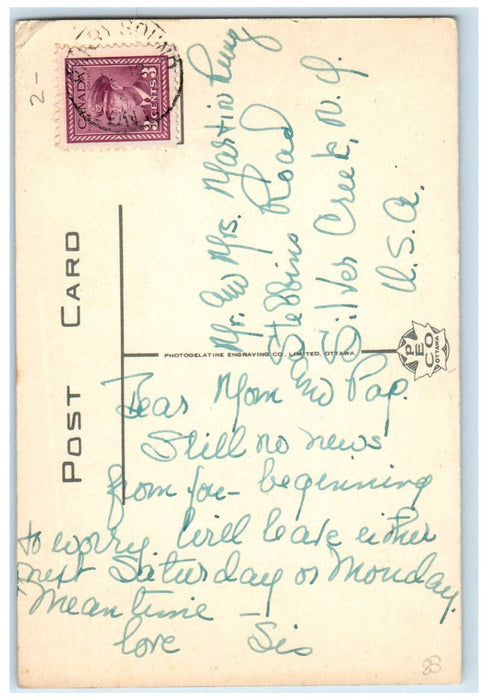 Dear Mom and Pap.
Still no news
from you - beginning
to worry. Will leave either
next Saturday or Monday.
Meantime -
love Sis
Mr. and Mrs. Martin
Stebbins Road
Silver Creek, N.Y.
U.S.A.
POST CARD
PHOTOGELATINE ENGRAVING CO., LIMITED, OTTAWA.
PECO
OTTAWA
CANADA
3 CENTS 3
RY SOUND
2-